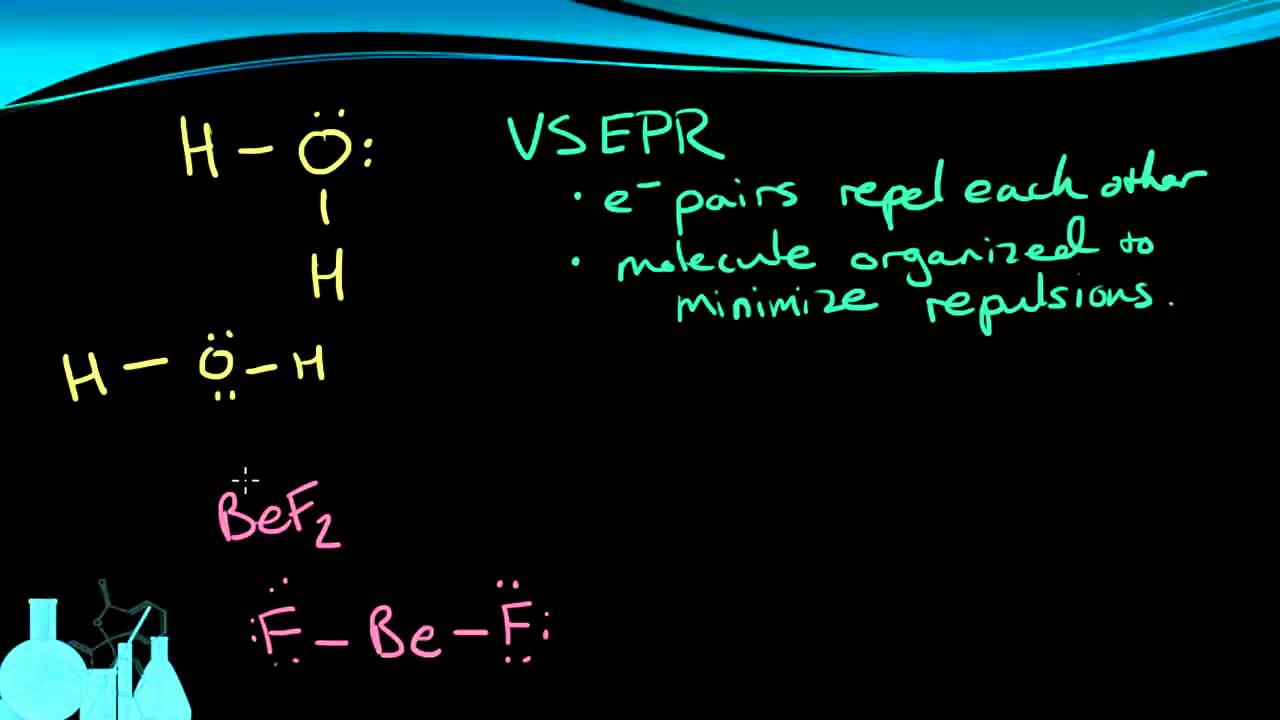 H – Ö:
|
H
VSEPR
· e⁻ pairs repel each other
· molecule organized to
minimize repulsions.
H – Ö̤ – H
BeF₂
:F̤̈ – Be – F̤̈: